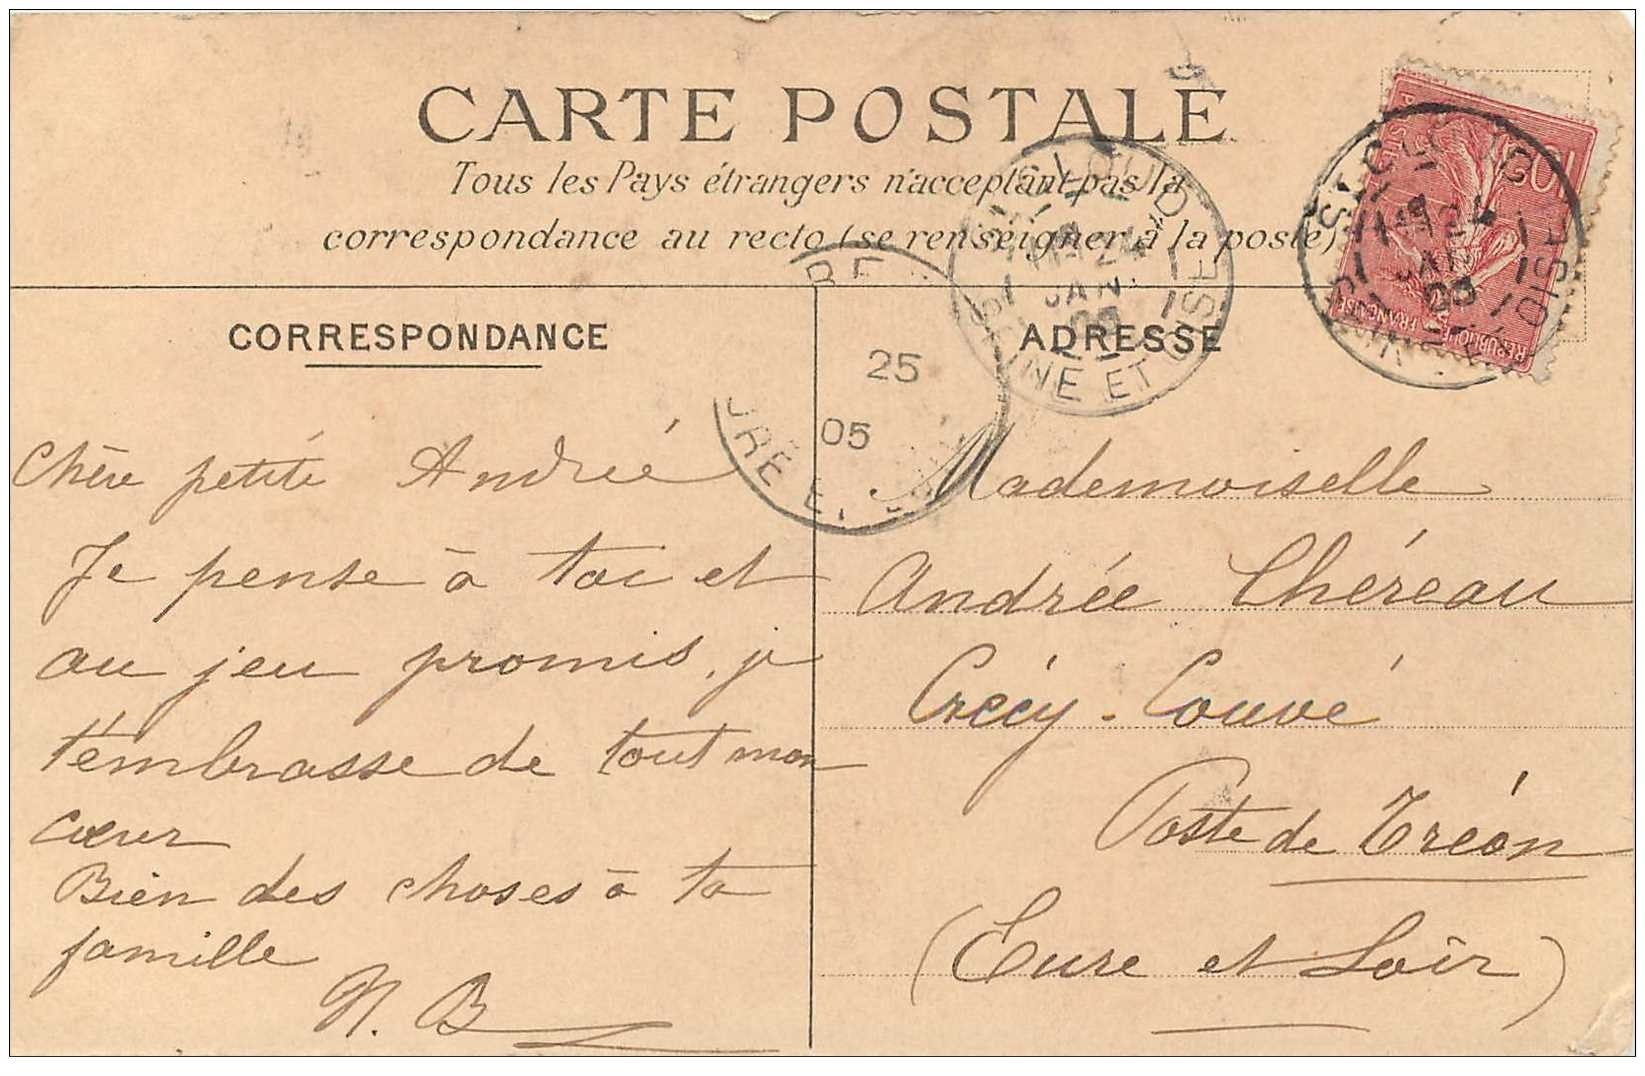 CARTE POSTALE
Tous les Pays étrangers n'acceptant pas la
correspondance au recto (se renseigner à la poste)
CORRESPONDANCE
Chère petite Andrée
Je pense à toi et
au jeu promis, je
t'embrasse de tout mon
cœur
Bien des choses à ta
famille
N. B
ADRESSE
Mademoiselle
Andrée Chéreau
Crécy-Couvé
Poste de Tréon
(Eure et Loir)
ST CLOUD
24
JAN.
05
SEINE ET OISE
25
05
10
REPUBLIQUE
FRANÇAISE